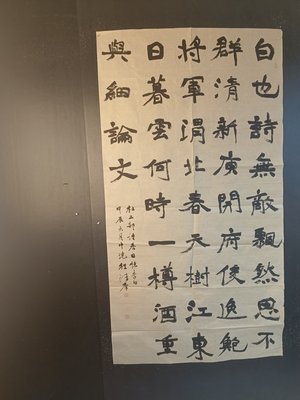 白也詩無敵飄然思不
群清新庾開府俊逸鮑
將軍渭北春天樹江東
日暮雲何時一樽酒重
與細論文
杜工部詩春日憶李白
甲辰六月中浣